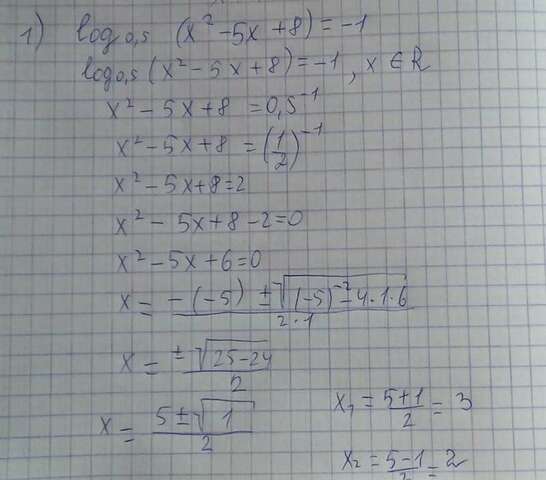 1) log₀,₅ (x² - 5x + 8) = -1
log₀,₅ (x² - 5x + 8) = -1, x ∈ R
x² - 5x + 8 = 0,5⁻¹
x² - 5x + 8 = (1/2)⁻¹
x² - 5x + 8 = 2
x² - 5x + 8 - 2 = 0
x² - 5x + 6 = 0
x = (-(-5) ± √((-5)⁻² - 4·1·6))/(2·1)
x = (± √(25-24))/2
x = (5 ± √1)/2
x₁ = (5+1)/2 = 3
x₂ = (5-1)/2 = 2